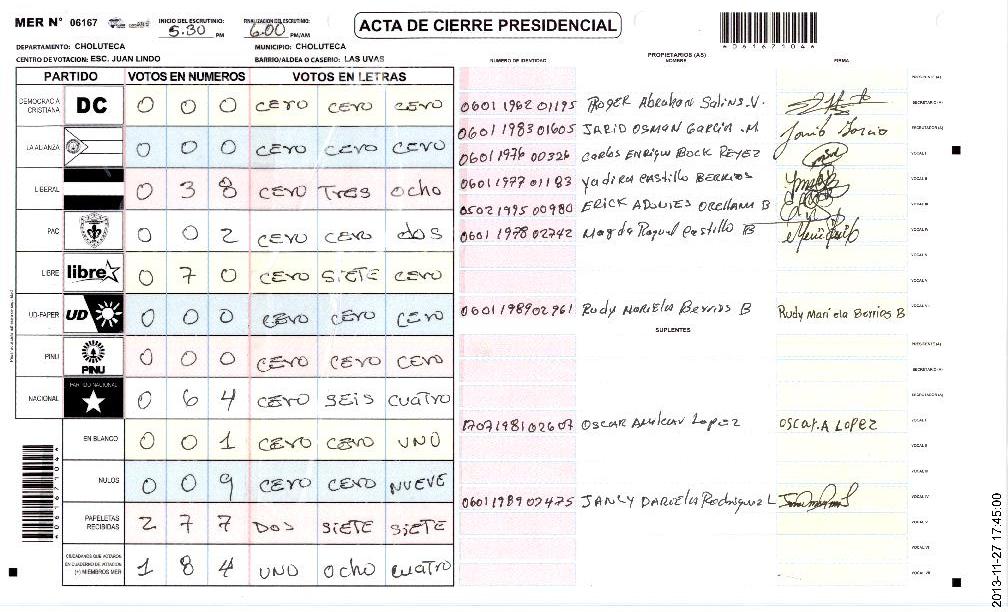 MER N° 06167 INICIO DEL ESCRUTINIO: 5.30 PM FINALIZACION DEL ESCRUTINIO: 6.00 PM/AM ACTA DE CIERRE PRESIDENCIAL
DEPARTAMENTO: CHOLUTECA MUNICIPIO: CHOLUTECA
CENTRO DE VOTACION: ESC. JUAN LINDO BARRIO/ALDEA O CASERIO: LAS UVAS
PARTIDO VOTOS EN NUMEROS VOTOS EN LETRAS
DEMOCRACIA CRISTIANA DC 0 0 0 CERO CERO CERO
LA ALIANZA 0 0 0 CERO CERO CERO
LIBERAL 0 3 8 CERO TRES OCHO
PAC 0 0 2 CERO CERO dos
LIBRE libre 0 7 0 CERO SIETE CERO
UD-FAPER UD 0 0 0 CERO CERO CERO
PINU PINU 0 0 0 CERO CERO CERO
NACIONAL PARTIDO NACIONAL 0 6 4 CERO SEIS CUATRO
EN BLANCO 0 0 1 CERO CERO UNO
NULOS 0 0 9 CERO CERO NUEVE
PAPELETAS RECIBIDAS 2 7 7 DOS SIETE SIETE
CIUDADANOS QUE VOTARON EN CUADERNO DE VOTACION (+) MIEMBROS MER 1 8 4 UNO OCHO CUATRO
PROPIETARIOS (AS)
NUMERO DE IDENTIDAD NOMBRE FIRMA
PRESIDENTE (A)
0601 1962 01195 ROGER Abraham Salins.V. SECRETARIO (A)
0601 1983 01605 JARID OSMAN GARCIA .M ESCRUTADOR (A)
0601 1976 00326 Carlos ENRIQUE BOCK REYEZ VOCAL I
0601 1977 01183 Yadira Castillo BERRIOS VOCAL II
0502 1995 00980 ERICK ADONIES ORELLANA B VOCAL III
0601 1978 02742 Magda Raquel Castillo B VOCAL IV
VOCAL V
VOCAL V
0601 1989 02961 Rudy MARIELA Berrios B Rudy Mariela Berrios B VOCAL VI
SUPLENTES
PRESIDENTE (A)
SECRETARIO (A)
ESCRUTADOR (A)
1707198102607 OSCAR Amilcar Lopez OSCAR.A LOPEZ VOCAL I
VOCAL II
VOCAL III
0601 1989 02475 JANCY DARIELA Rodriguez L VOCAL IV
VOCAL V
VOCAL VI
VOCAL VII
2013-11-27 17:45:00